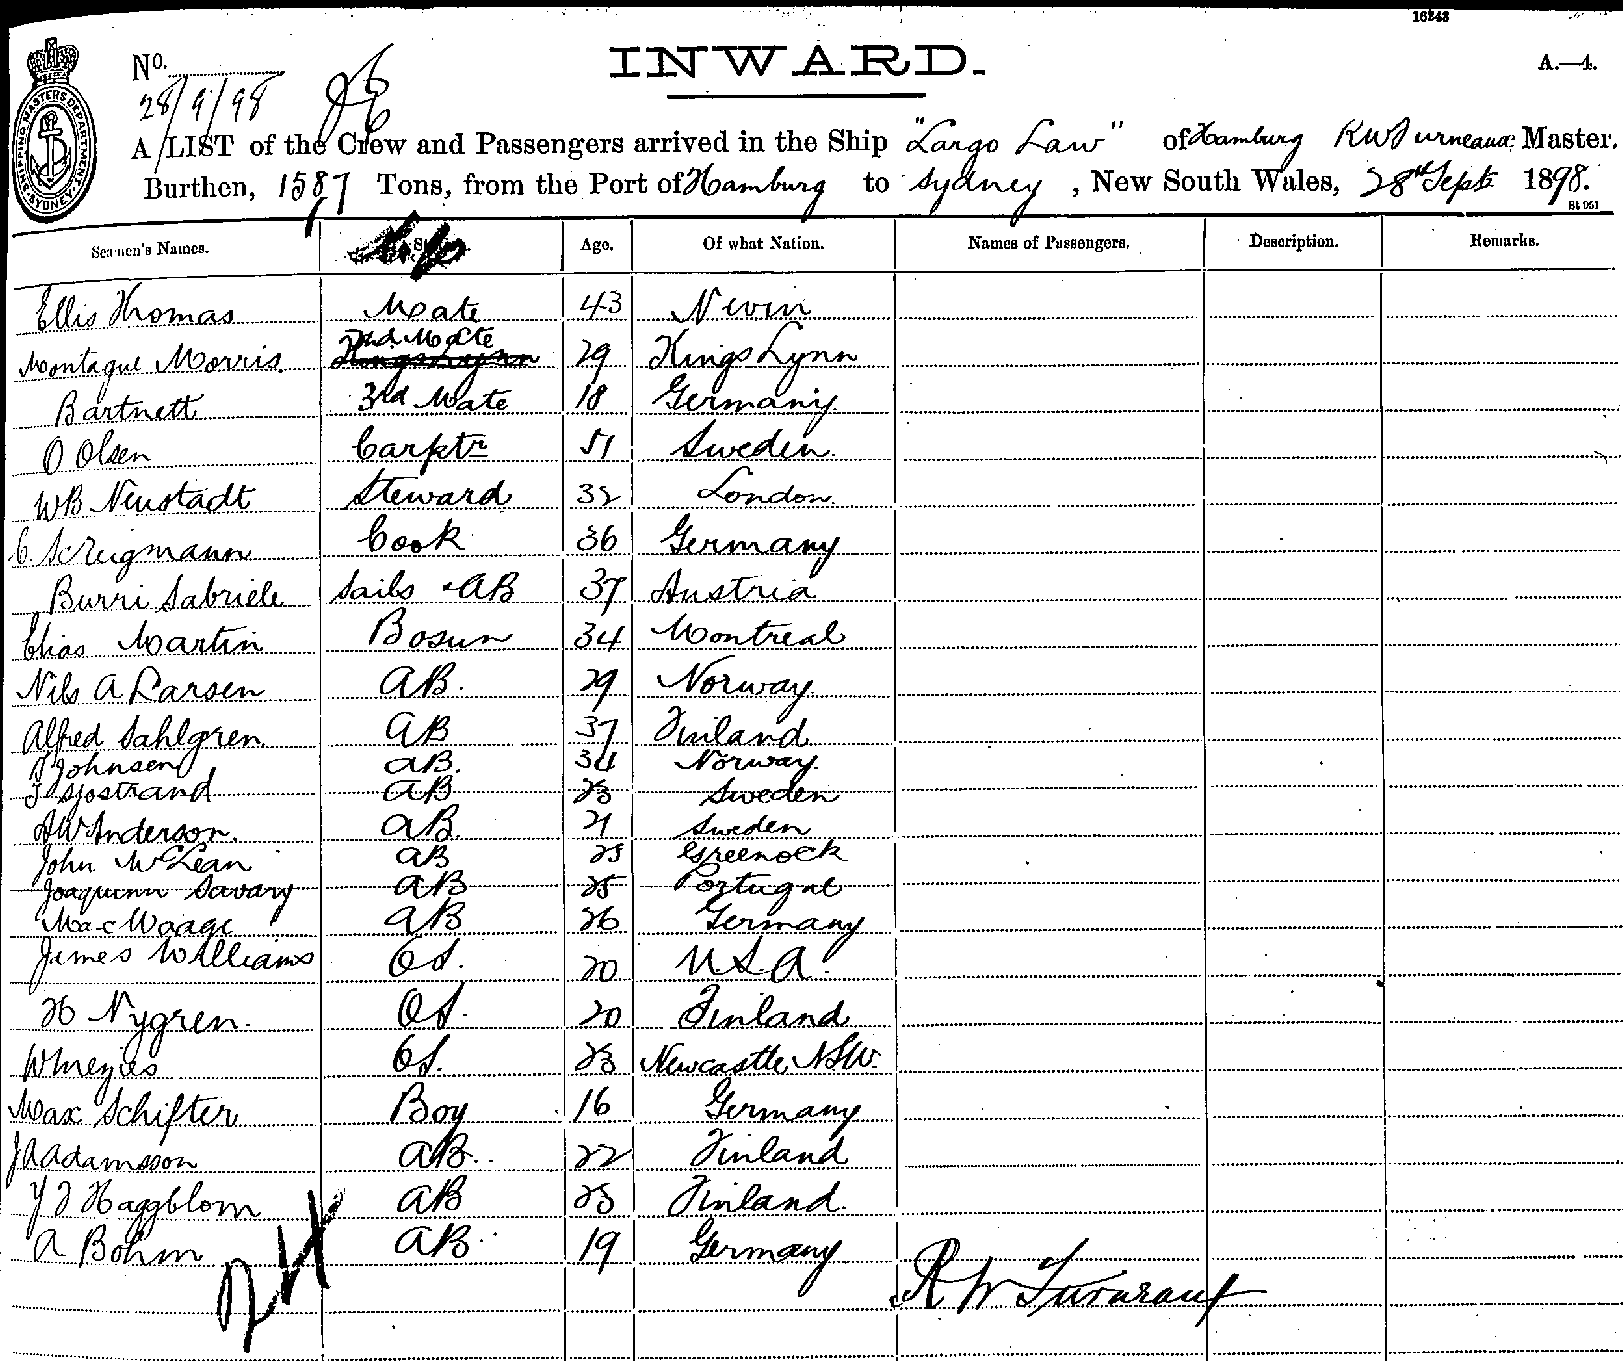 16243
INWARD.
A.—4.
No.
28/9/98
SHIPPING MASTERS DEPARTMENT. SYDNEY.
A LIST of the Crew and Passengers arrived in the Ship "Largo Law" of Hamburg R W Furneaux Master.
Burthen, 1587 Tons, from the Port of Hamburg to Sydney, New South Wales, 28th Sept 1898.
Seamen's Names. Age. Of what Nation. Names of Passengers. Description. Remarks.
Ellis Thomas Mate 43 Nevin
Montague Morris 2nd Mate 29 Kings Lynn
Bartnett 3rd Mate 18 Germany
O Olsen Carptr 51 Sweden
WB Neustadt Steward 32 London
C. Cook 36 Germany
Burri Gabriele Sails + AB 37 Austria
Elias Martin Bosun 34 Montreal
Nils A Larsen AB. 29 Norway
Alfred Sahlgren AB 37 Finland
Johnsen AB. 34 Norway
F Sjostrand AB 23 Sweden
AW Anderson. AB 21 Sweden
John McLean AB 25 Greenock
Joaquinn Savary AB 25 Portugal
Max Waage AB 26 Germany
James Williams OS. 20 USA.
H Nygren. OS. 20 Finland
W OS. 23 Newcastle NSW.
Max Schifter Boy 16 Germany
JA Adamsson AB. 22 Finland
Haggblom AB 25 Finland
A Bohm AB 19 Germany
R W Furneaux